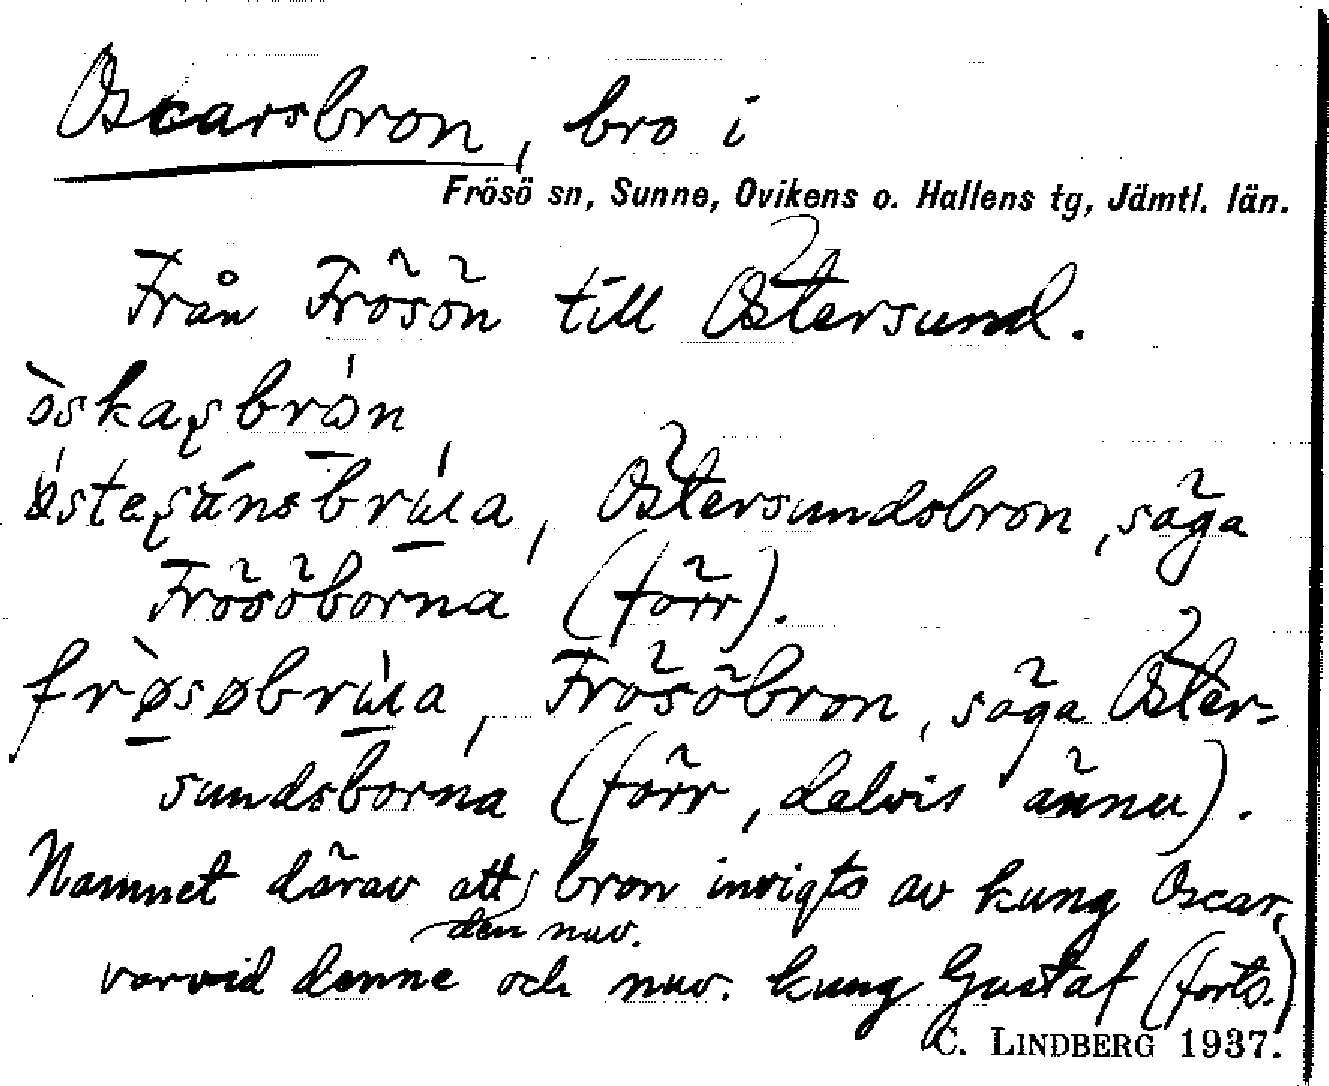 Oscarsbron, bro i
Frösö sn, Sunne, Ovikens o. Hallens tg, Jämtl. län.
Från Frösön till Östersund.
Östersundsbron, säga
Frösöborna (förr).
Frösöbron, säga Öster-
sundsborna (förr, delvis ännu).
Namnet därav att bron invigts av kung Oscar,
den nuv.
varvid denne och nuv. kung Gustaf (forts.)
C. LINDBERG 1937.